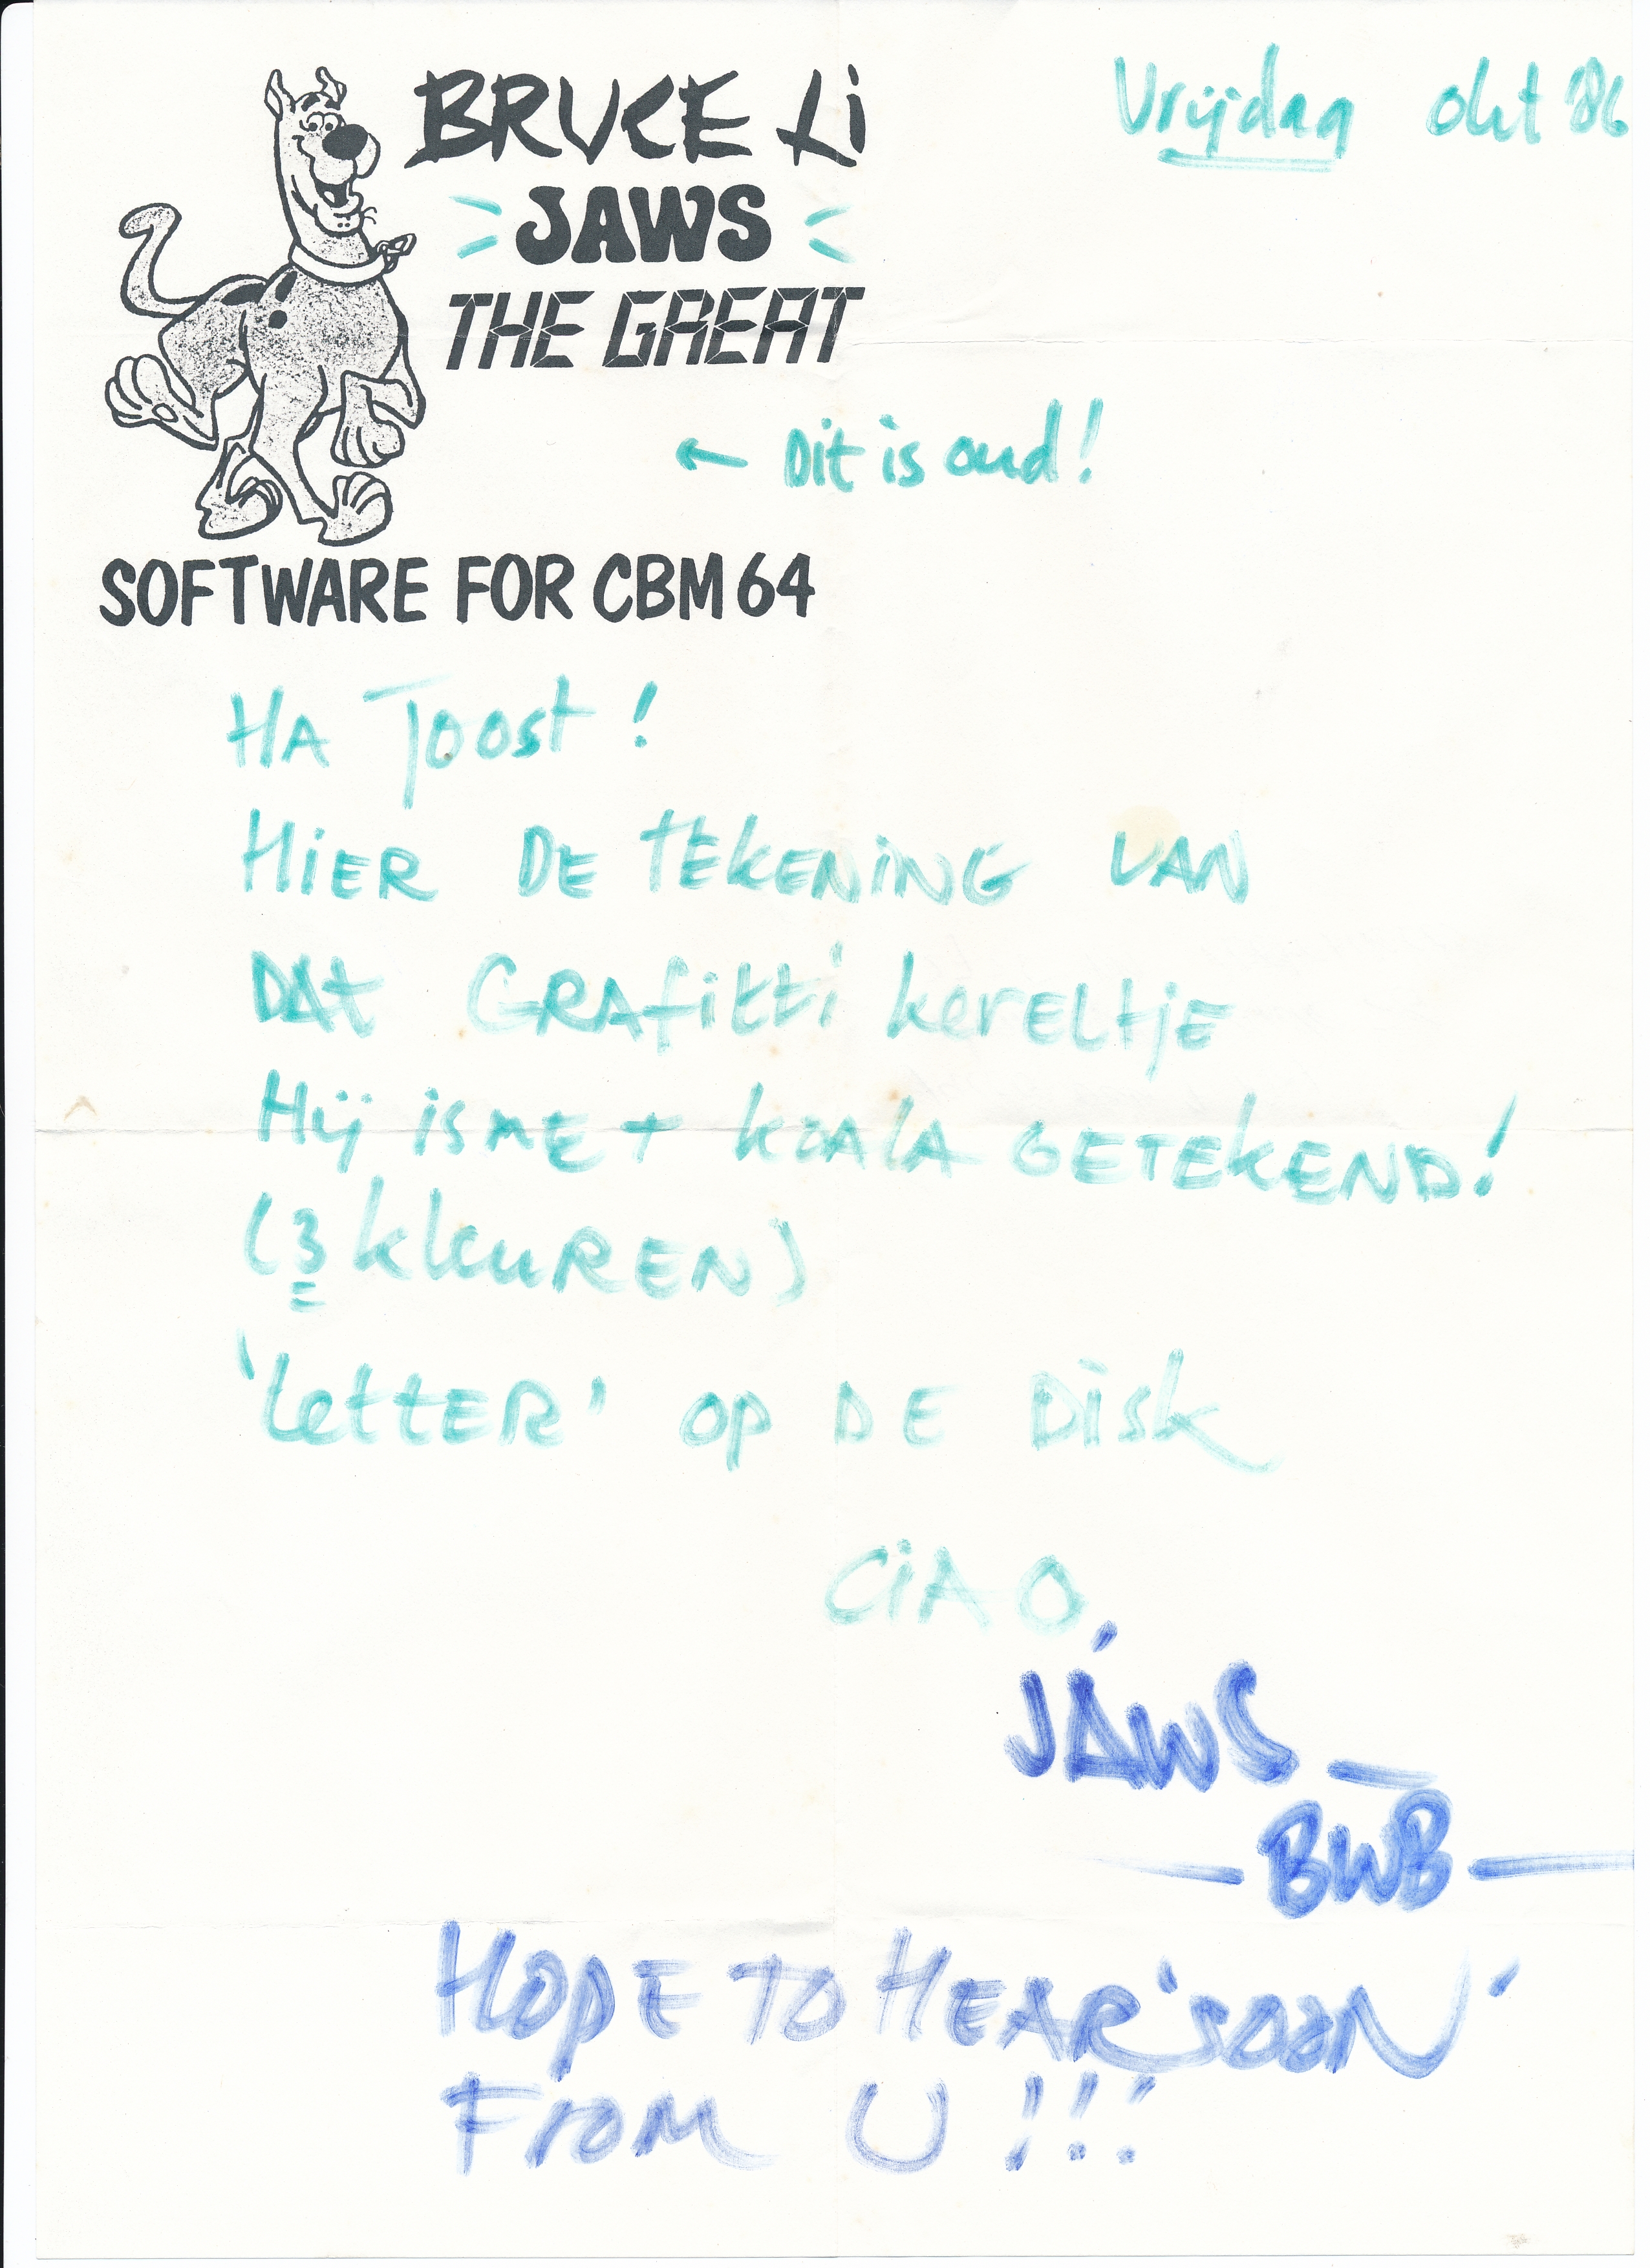 BRUCE Li
Vrijdag okt '86
JAWS
THE GREAT
← Dit is oud!
SOFTWARE FOR CBM 64
HA Joost!
HiER DE TEKENiNG VAN
DAt GRAfitti kereltjE
Hij is mEt koala GETEKEND!
(3 kleuREN)
'LettER' op DE Disk
CiAO,
JAWS_
— BWB —
HOPE TO HEAR 'SOON'
FROM U!!!